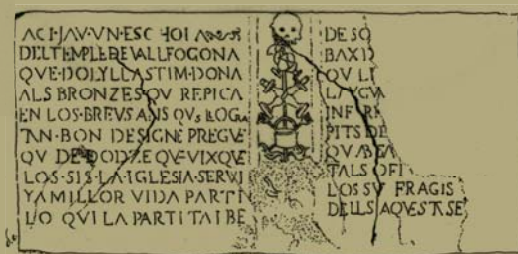 ACI·JAV·VN·ESCHOLA
DEL·TEMPLE·DE·VALLFOGONA
QVE·DOL·Y·LLASTIM·DONA
ALS BRONZES QV REPICA
EN LOS·BREVS ANS QVS LLOGA
TAN·BON DESIGNE PREGVE
QV DE·DODZE QVE·VIXQVE
LOS·SIS·LA·IGLESIA·SERVI
Y A MILLOR VIDA PARTI
LO QVI LA PARTITAI BE
DE SO
BAXI
QV LI
LAYGVA
INFER
PITS DE
TALS OFI
LOS SV FRAGIS
DELLS AQVESTA SE